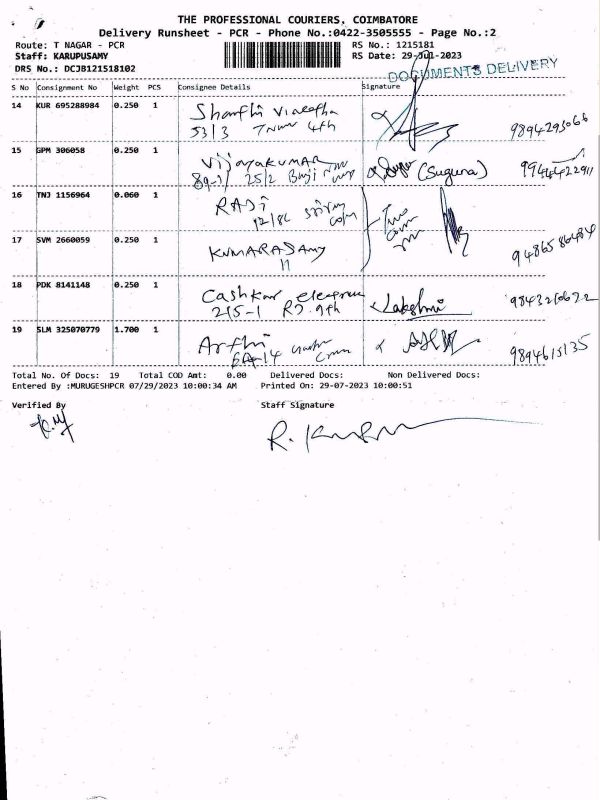 THE PROFESSIONAL COURIERS, COIMBATORE
Delivery Runsheet - PCR - Phone No.:0422-3505555 - Page No.:2
Route: T NAGAR - PCR RS No.: 1215181
Staff: KARUPUSAMY RS Date: 29-Jul-2023
DRS No.: DCJB121518102 DOCUMENTS DELIVERY
S No Consignment No Weight PCS Consignee Details Signature
14 KUR 695288984 0.250 1 Shanthi
53/3 4th 9894293066
15 GPM 306058 0.250 1 Vijayakumar (Suguna)
25/2 9944422911
16 TNJ 1156964 0.060 1 RAJI
12/86
17 SVM 2660059 0.250 1 KUMARASAMY 9486586484
11
18 PDK 8141148 0.250 1 Cashkar Lakshmi
215-1 9th
19 SLM 325070779 1.700 1 Arthi
9894615135
Total No. Of Docs: 19 Total COD Amt: 0.00 Delivered Docs: Non Delivered Docs:
Entered By :MURUGESHPCR 07/29/2023 10:00:34 AM Printed On: 29-07-2023 10:00:51
Verified By Staff Signature